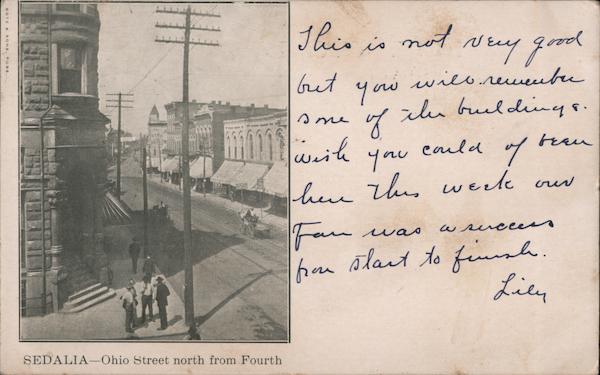 This is not very good
but you will remember
some of the buildings.
wish you could of been
here this week our
Fair was a success
from start to finish.
Lily
SEDALIA—Ohio Street north from Fourth